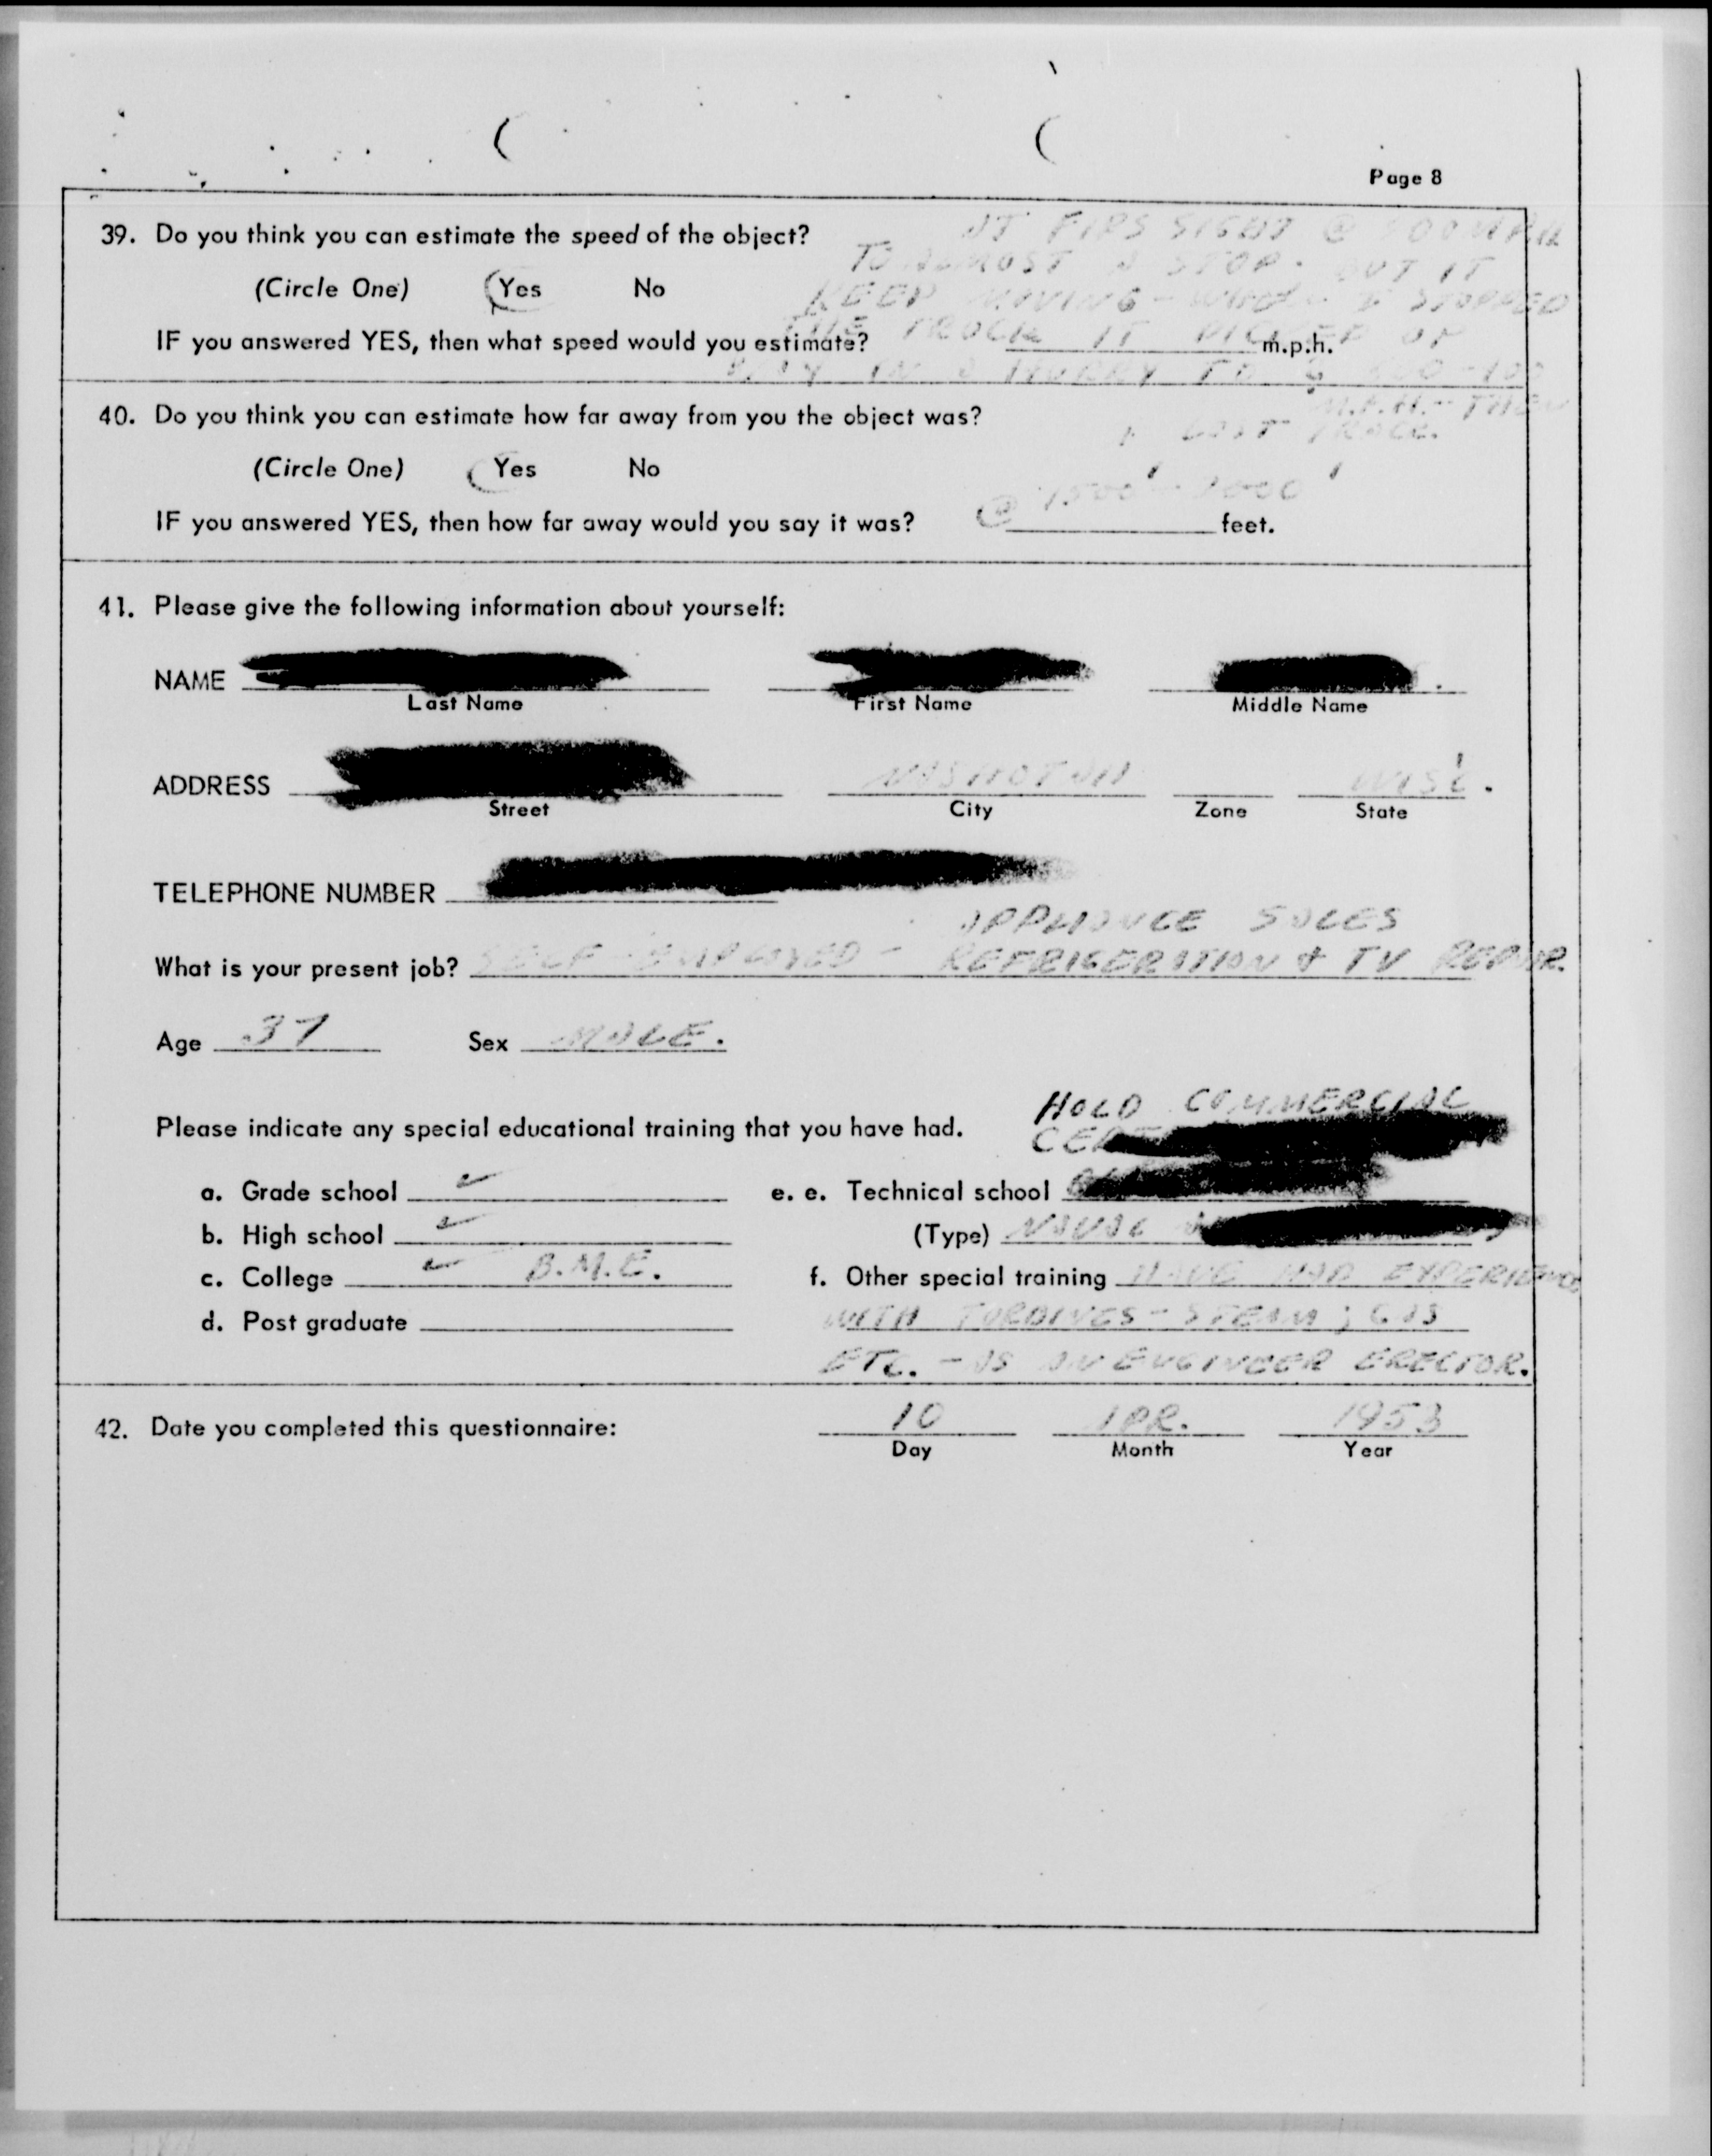 Page 8
39. Do you think you can estimate the speed of the object?
AT FIRS SIGHT @
TO ALMOST A STOP. BUT IT
(Circle One) Yes No
KEEP MOVING - I STOPPED
THE TRUCK IT PICKED UP
IF you answered YES, then what speed would you estimate? m.p.h.
IN A HURRY TO
M.P.H. - THEN
40. Do you think you can estimate how far away from you the object was?
I LOST TRACK.
(Circle One) Yes No
IF you answered YES, then how far away would you say it was? @ feet.
41. Please give the following information about yourself:
NAME
Last Name First Name Middle Name
ADDRESS NASHOTAH WISC.
Street City Zone State
TELEPHONE NUMBER
APPLIANCE SALES
What is your present job? SELF-EMPLOYED - REFRIGERATION & TV REPAIR.
Age 37 Sex MALE.
HOLD COMMERCIAL
Please indicate any special educational training that you have had.
a. Grade school ✓ e. e. Technical school
b. High school ✓ (Type) NAVAL
c. College ✓ B.M.E. f. Other special training HAVE HAD EXPERIENCE
d. Post graduate WITH TURBINES - STEAM; GAS
ETC. - AS AN ENGINEER ERECTOR.
42. Date you completed this questionnaire: 10 APR. 1953
Day Month Year